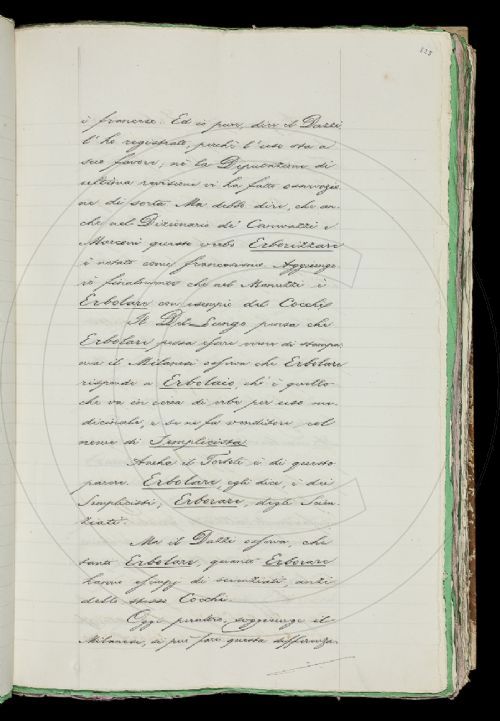 è francese. Ed io pure, dice il Dazzi
l'ho registrato, perchè l'uso sta a
suo favore; nè la Deputazione di
ultima revisione vi ha fatto osservazio
ne di sorta. Ma debbo dire, che an-
che nel Dizionario di Canvazzi e
Morconi questo verbo Erborizzare
è notato come francesismo. Aggiunge
rò finalmente che nel Manuzzi è
Erbolare con esempio del Cocchi.
Il Del-Lungo pensa che
Erbolare possa essere error di stampa,
ma il Milanesi osserva che Erbolare
risponde a Erbolaio, ch'è quello
che va in cerca di erbe per uso me-
dicinale, e se ne fa venditore, col
nome di Semplicista.
Anche il Tortoli è di questo
parere. Erbolare, egli dice, è dei
Semplicisti; Erborare, degli Scien-
ziati.
Ma il Dazzi osserva, che
tanto Erbolare, quanto Erborare
hanno esempj di scienziati, anzi
dello stesso Cocchi.
Oggi peraltro, soggiunge il
Milanesi, si può fare questa differenza